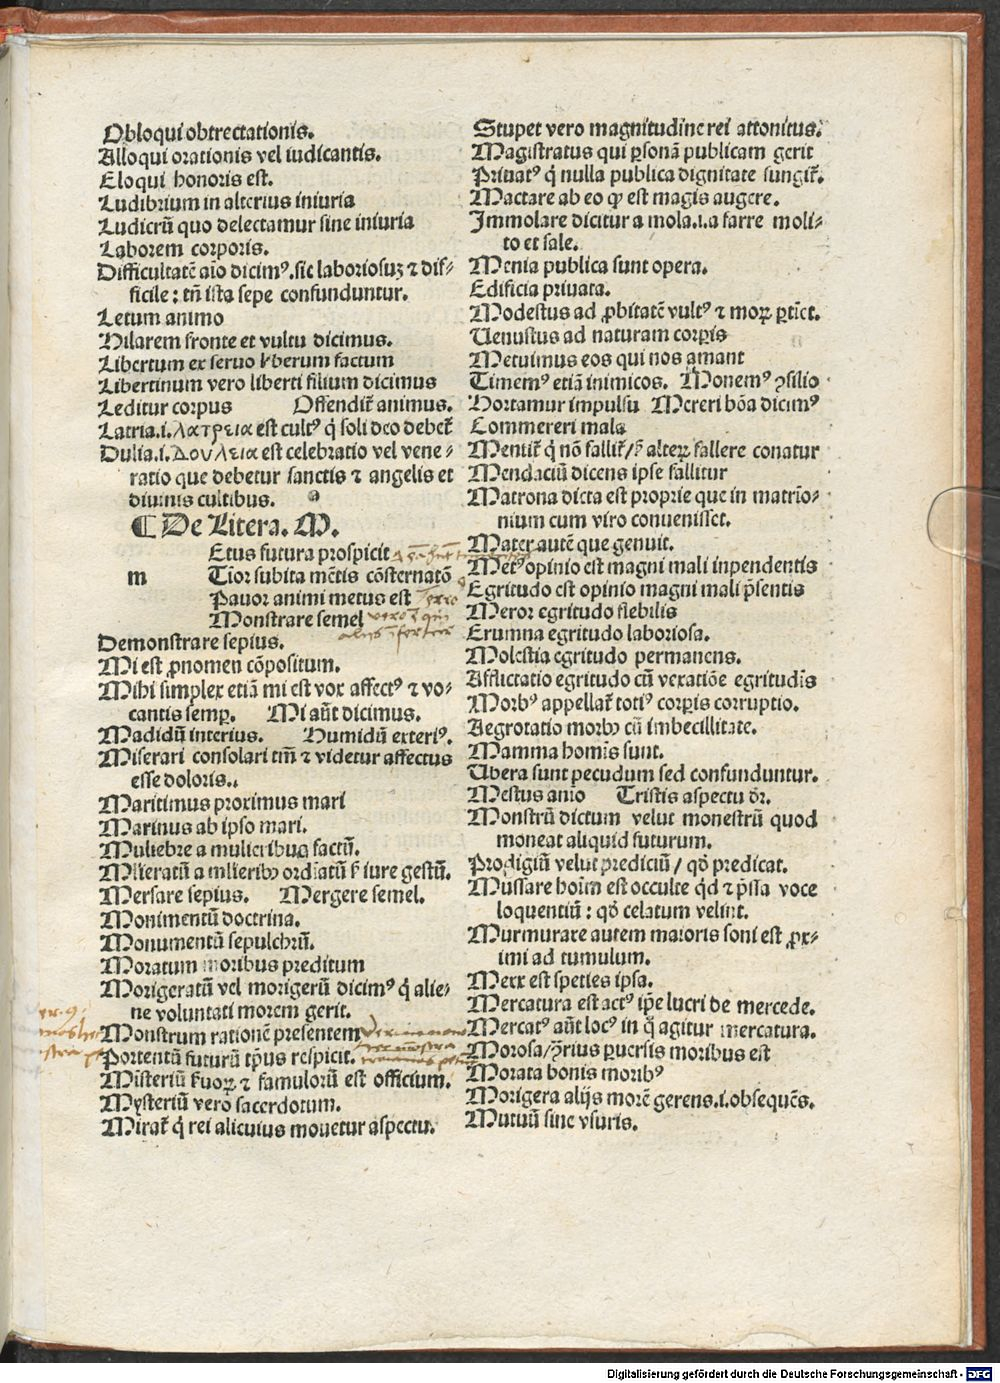 Obloqui obtrectationis.
Alloqui orationis vel iudicantis.
Eloqui honoris est.
Ludibrium in alterius iniuria
Ludicrū quo delectamur sine iniuria
Laborem corporis.
Difficultatē aīo dicimꝰ.sic laboriosuꝫ ⁊ dif⸗
ficile: tn̄ ista sepe confunduntur.
Letum animo
Hilarem fronte et vultu dicimus.
Libertum ex seruo liberum factum
Libertinum vero liberti filium dicimus
Leditur corpus Offendit᷑ animus.
Latria.i.λατρεια est cultꝰ q̇ soli deo debet᷑
Dulia.i.Δουλεια est celebratio vel vene⸗
ratio que debetur sanctis ⁊ angelis et
diuinis cultibus.
¶ De Litera. M.
Etus futura prospicit
m Tīor subita mētis cōsternatō
Pauor animi metus est
Monstrare semel
Demonstrare sepius.
Mi est ꝓnomen cōpositum.
Mihi simplex etiā mi est vox affectꝰ ⁊ vo⸗
cantis semꝑ. Mi aūt dicimus.
Madidū interius. Humidū exteriꝰ.
Miserari consolari tm̄ ⁊ videtur affectus
esse doloris..
Maritimus proximus mari
Marinus ab ipso mari.
Muliebre a mulieribus factū.
Mlieratū a mlieribꝫ ordīatū ẜ iure gestū.
Mersare sepius. Mergere semel.
Monimentū doctrina.
Monumentū sepulchrū.
Moratum moribus preditum
Morigeratū vel morigerū dicimꝰ q̇ alie⸗
ne voluntati morem gerit.
Monstrum rationē presentem
Portentū futurū tp̄us respicit.
Misteriū ẜuoꝝ ⁊ famulorū est officium.
Mysteriū vero sacerdotum.
Mirat᷑ q̇ rei alicuius mouetur aspectu.
Stupet vero magnitudine rei attonitus.
Magistratus qui ꝑsonā publicam gerit
Priuatꝰ q̇ nulla publica dignitate fungit᷑.
Mactare ab eo ꝙ est magis augere.
Immolare dicitur a mola.i.a farre moli⸗
to et sale.
Menia publica sunt opera.
Edificia priuata.
Modestus ad ꝓbitatē vultꝰ ⁊ moꝝ ꝑtīet.
Uenustus ad naturam corꝑis
Metuimus eos qui nos amant
Timemꝰ etiā inimicos. Monemꝰ ꝯsilio
Hortamur impulsu Mereri bōa dicimꝰ
Commereri mala
Mentit᷑ q̇ nō fallit᷑/ẜ alteꝝ fallere conatur
Mendaciū dicens ipse fallitur
Matrona dicta est proprie que in matrīo⸗
nium cum viro conuenisset.
Mater autē que genuit.
Metꝰ opinio est magni mali inpendentis
Egritudo est opinio magni mali p̄sentis
Meror egritudo flebilis
Erumna egritudo laboriosa.
Molestia egritudo permanens.
Afflictatio egritudo cū vexatiōe egritudīs
Morbꝰ appellat᷑ totiꝰ corꝑis corruptio.
Aegrotatio morbꝰ cū imbecillitate.
Mamma homīs sunt.
Ubera sunt pecudum sed confunduntur.
Mestus anīo Tristis aspectu dr̄.
Monstrū dictum velut monestrū quod
moneat aliquid futurum.
Prodigiū velut prediciū/ qd̄ predicat.
Mussare hoīm est occulte q̇d ⁊ p̄ssa voce
loquentiū: qd̄ celatum velint.
Murmurare autem maioris soni est ꝓx⸗
imi ad tumulum.
Merx est speties ipsa.
Mercatura est actꝰ ip̄e lucri de mercede.
Mercatꝰ aūt locꝰ in q̇ agitur mercatura.
Morosa/ꝯ̄rius ꝑuersis moribus est
Morata bonis moribꝰ
Morigera alijs morē gerens.i.obsequēs.
Mutuū sine vsuris.
Digitalisierung gefördert durch die Deutsche Forschungsgemeinschaft - DFG